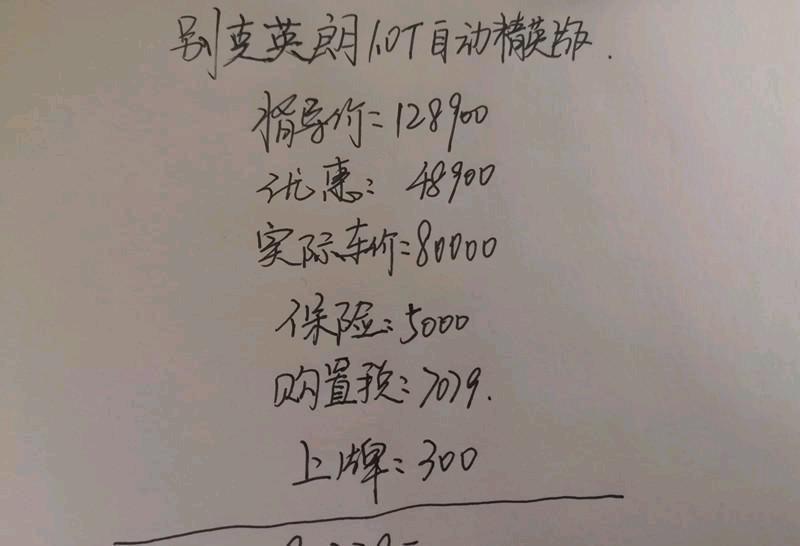 别克英朗1.0T自动精英版.
指导价=128900
优惠:48900
实际车价=80000
保险:5000
购置税:7079.
上牌:300